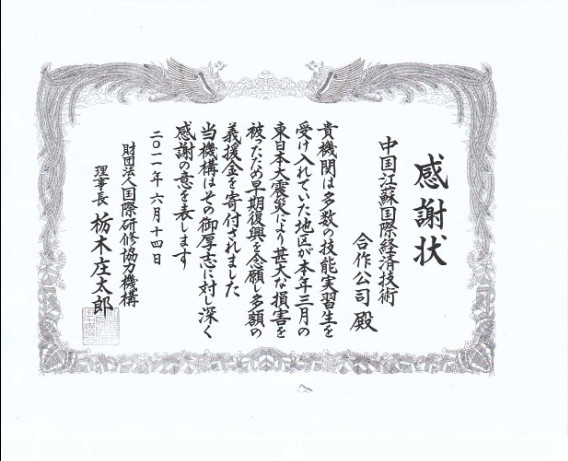 感謝状
中国江蘇国際経済技術
合作公司 殿
貴機関は多数の技能実習生を
受け入れていた地区が本年三月の
東日本大震災により甚大な損害を
被ったため早期復興を念願し多額の
義援金を寄付されました
当機構はその御厚志に対し深く
感謝の意を表します
二〇一一年六月十四日
財団法人国際研修協力機構
理事長 栃木庄太郎